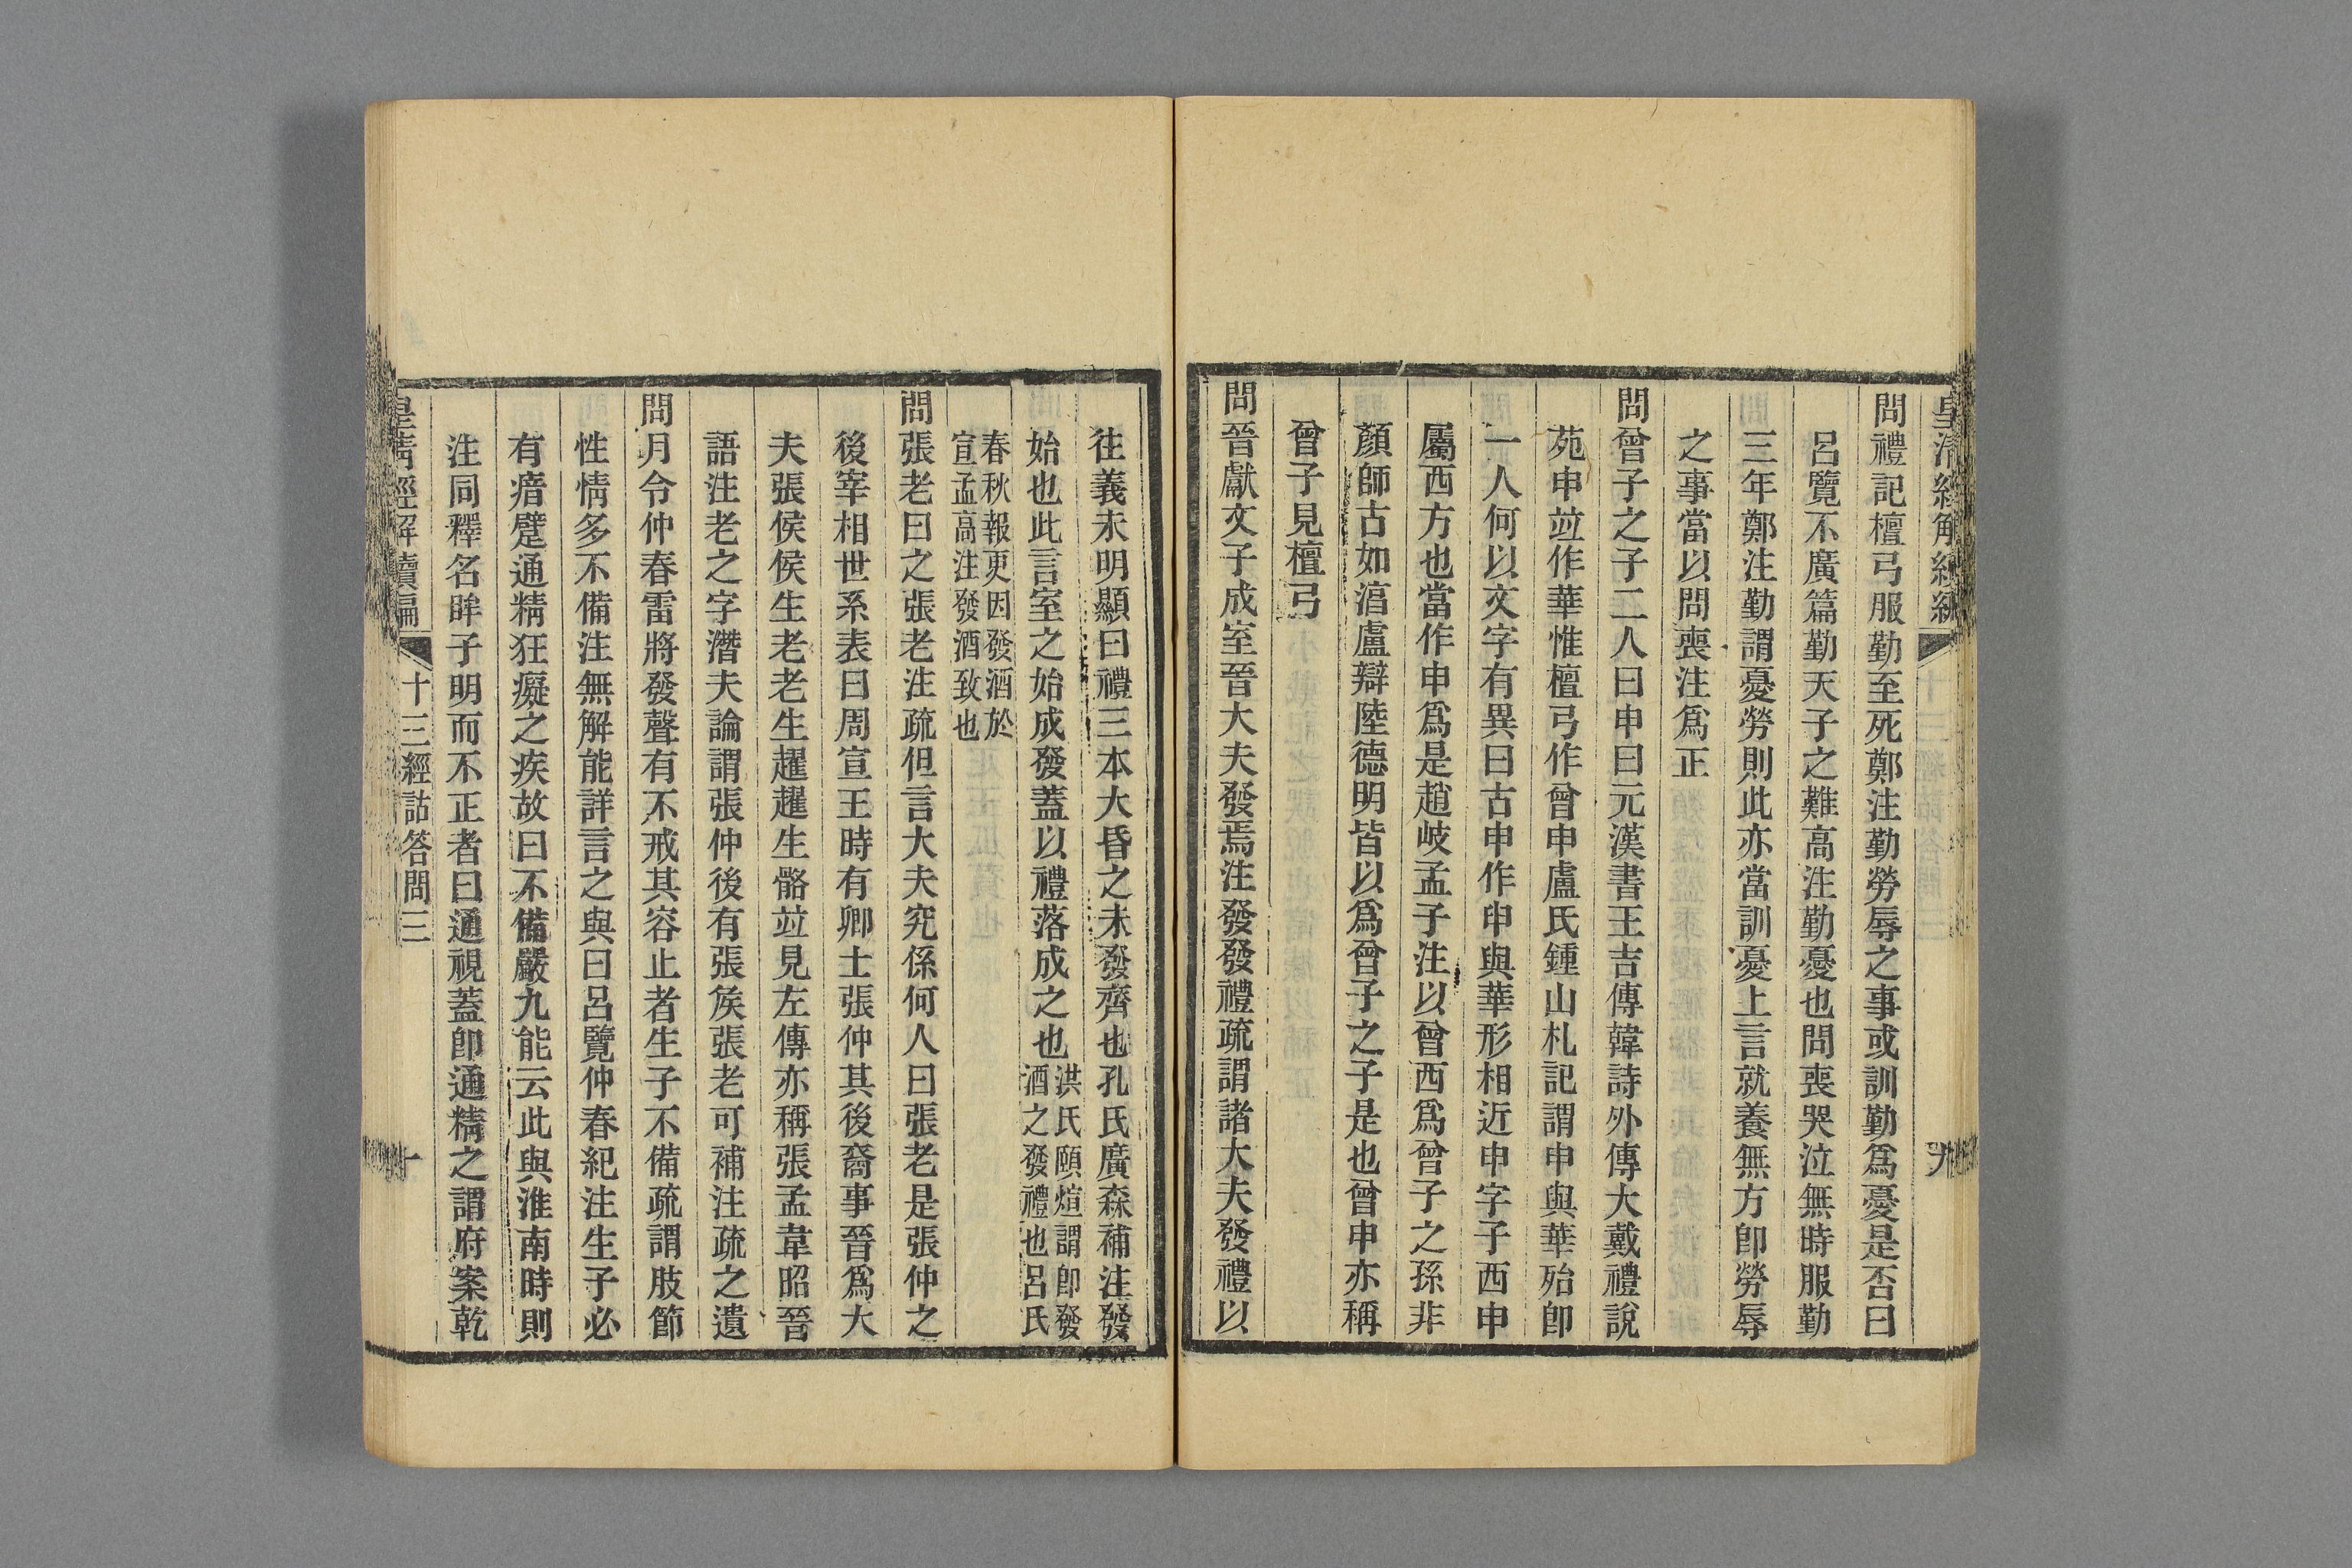 皇清經解續編
九
問禮記檀弓服勤至死鄭注勤勞辱之事或訓勤爲憂是否曰
呂覽不廣篇勤天子之難高注勤憂也問喪哭泣無時服勤
三年鄭注勤謂憂勞則此亦當訓憂上言就養無方卽勞辱
之事當以問喪注爲正
問曾子之子二人曰申曰元漢書王吉傳韓詩外傳大戴禮說
苑申竝作華惟檀弓作曾申盧氏鍾山札記謂申與華殆卽
一人何以文字有異曰古申作𢑚與華形相近申字子西申
屬西方也當作申爲是趙岐孟子注以曾西爲曾子之孫非
顏師古如淳盧辯陸德明皆以爲曾子之子是也曾申亦稱
曾子見檀弓
問晉獻文子成室晉大夫發焉注發發禮疏謂諸大夫發禮以
往義未明顯曰禮三本大昏之未發齊也孔氏廣森補注發
始也此言室之始成發蓋以禮落成之也洪氏頤煊謂卽發
酒之發禮也呂氏
春秋報更因發酒於
宣孟高注發酒致也
問張老曰之張老注疏但言大夫究係何人曰張老是張仲之
後宰相世系表曰周宣王時有卿士張仲其後裔事晉爲大
夫張侯侯生老老生趯趯生骼竝見左傳亦稱張孟韋昭晉
語注老之字潛夫論謂張仲後有張矦張老可補注疏之遺
問月令仲春雷將發聲有不戒其容止者生子不備疏謂肢節
性情多不備注無解能詳言之與曰呂覽仲春紀注生子必
有瘖躄通精狂癡之疾故曰不備嚴九能云此與淮南時則
注同釋名眸子明而不正者曰通視蓋卽通精之謂府案乾
皇清經解續編
十三經詁答問三
十